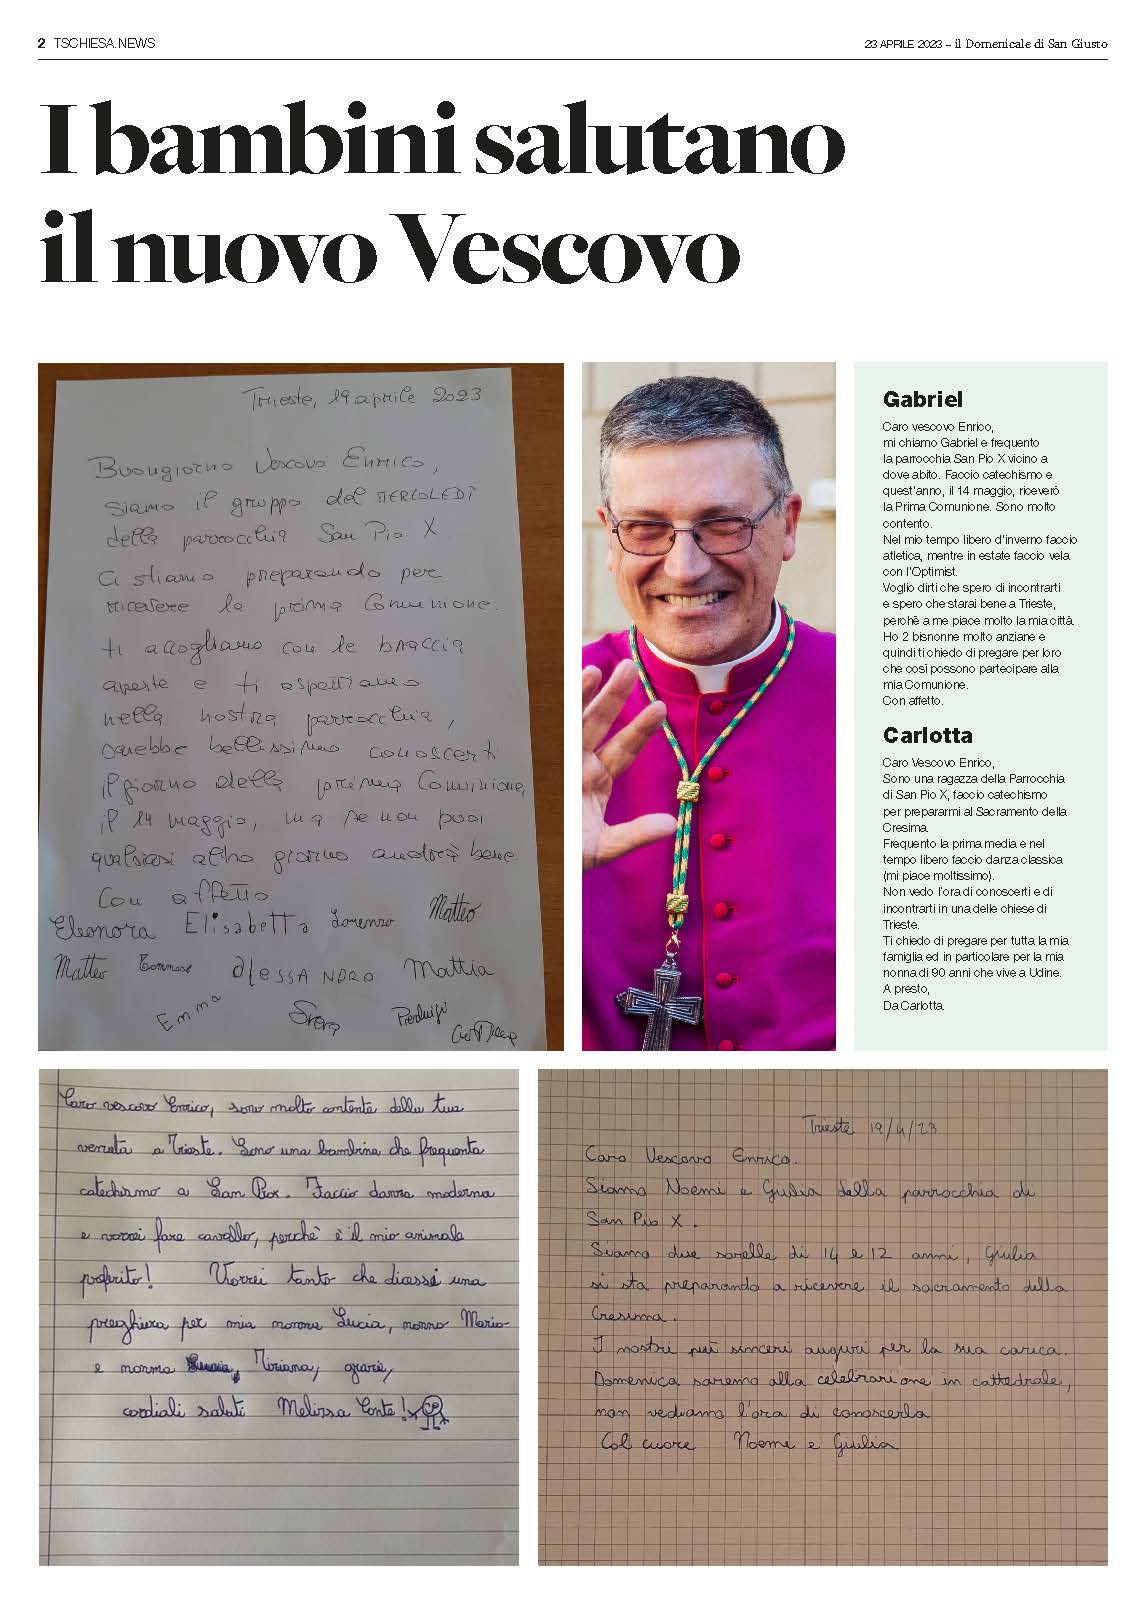 2 TSCHIESA.NEWS
23 APRILE 2023 – il Domenicale di San Giusto
I bambini salutano
il nuovo Vescovo
Trieste, 19 aprile 2023
Buongiorno Vescovo Enrico,
siamo il gruppo del MERCOLEDÌ
della parrocchia San Pio X
ci stiamo preparando per
ricevere la prima Comunione.
ti accogliamo con le braccia
aperte e ti aspettiamo
nella nostra parrocchia,
sarebbe bellissimo conoscerti
il giorno della prima Comunione,
il 14 maggio, ma se non puoi
qualsiasi altro giorno andrà bene.
Con affetto
Eleonora Elisabetta Lorenzo Matteo
Matteo Tommaso ALESSANDRO Mattia
Emma Pierluigi
Gabriel
Caro vescovo Enrico,
mi chiamo Gabriel e frequento
la parrocchia San Pio X vicino a
dove abito. Faccio catechismo e
quest'anno, il 14 maggio, riceverò
la Prima Comunione. Sono molto
contento.
Nel mio tempo libero d'inverno faccio
atletica, mentre in estate faccio vela
con l'Optimist.
Voglio dirti che spero di incontrarti
e spero che starai bene a Trieste,
perchè a me piace molto la mia città.
Ho 2 bisnonne molto anziane e
quindi ti chiedo di pregare per loro
che così possono partecipare alla
mia Comunione.
Con affetto.
Carlotta
Caro Vescovo Enrico,
Sono una ragazza della Parrocchia
di San Pio X, faccio catechismo
per prepararmi al Sacramento della
Cresima.
Frequento la prima media e nel
tempo libero faccio danza classica
(mi piace moltissimo).
Non vedo l'ora di conoscerti e di
incontrarti in una delle chiese di
Trieste.
Ti chiedo di pregare per tutta la mia
famiglia ed in particolare per la mia
nonna di 90 anni che vive a Udine.
A presto,
Da Carlotta.
Caro vescovo Enrico, sono molto contenta della tua
venuta a Trieste. Sono una bambina che frequenta
catechismo a San Piox. Faccio danza moderna
e vorrei fare cavallo, perchè è il mio animale
preferito! Vorrei tanto che dicessi una
preghiera per mia nonna Lucia, nonno Mario
e nonna Miriana, grazie,
cordiali saluti Melissa Conte!
Trieste 19/4/23
Caro Vescovo Enrico.
Siamo Noemi e Giulia della parrocchia di
San Pio X.
Siamo due sorelle di 14 e 12 anni, Giulia
si sta preparando a ricevere il sacramento della
Cresima.
I nostri più sinceri auguri per la sua carica.
Domenica saremo alla celebrazione in cattedrale,
non vediamo l'ora di conoscerla
Col cuore Noemi e Giulia